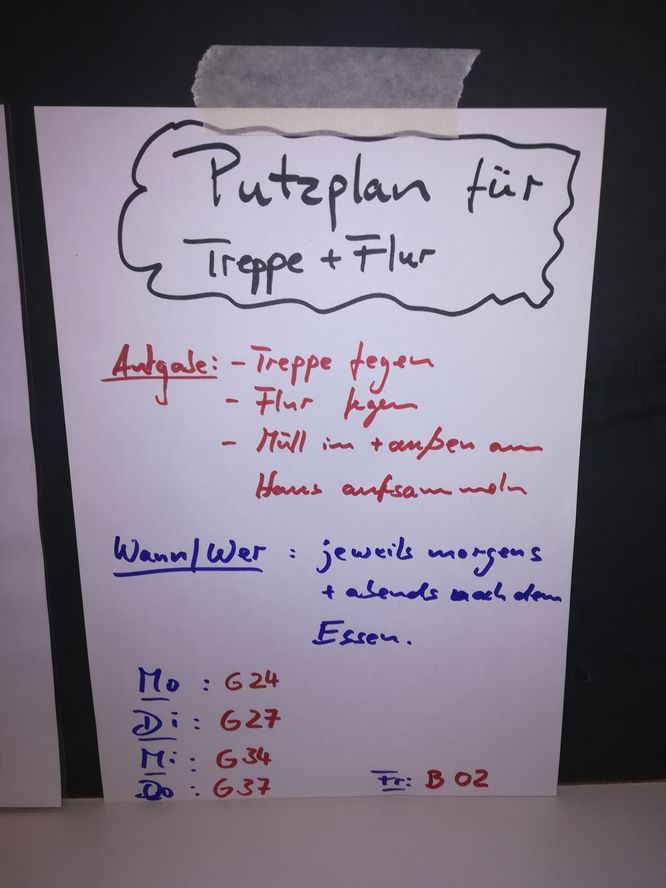 Putzplan für
Treppe + Flur
Aufgabe: - Treppe fegen
- Flur fegen
- Müll im + außen am
Haus aufsammeln
Wann/Wer : jeweils morgens
+ abends nach dem
Essen.
Mo : G24
Di : G27
Mi : G34
Do : G37 Fr: B 02